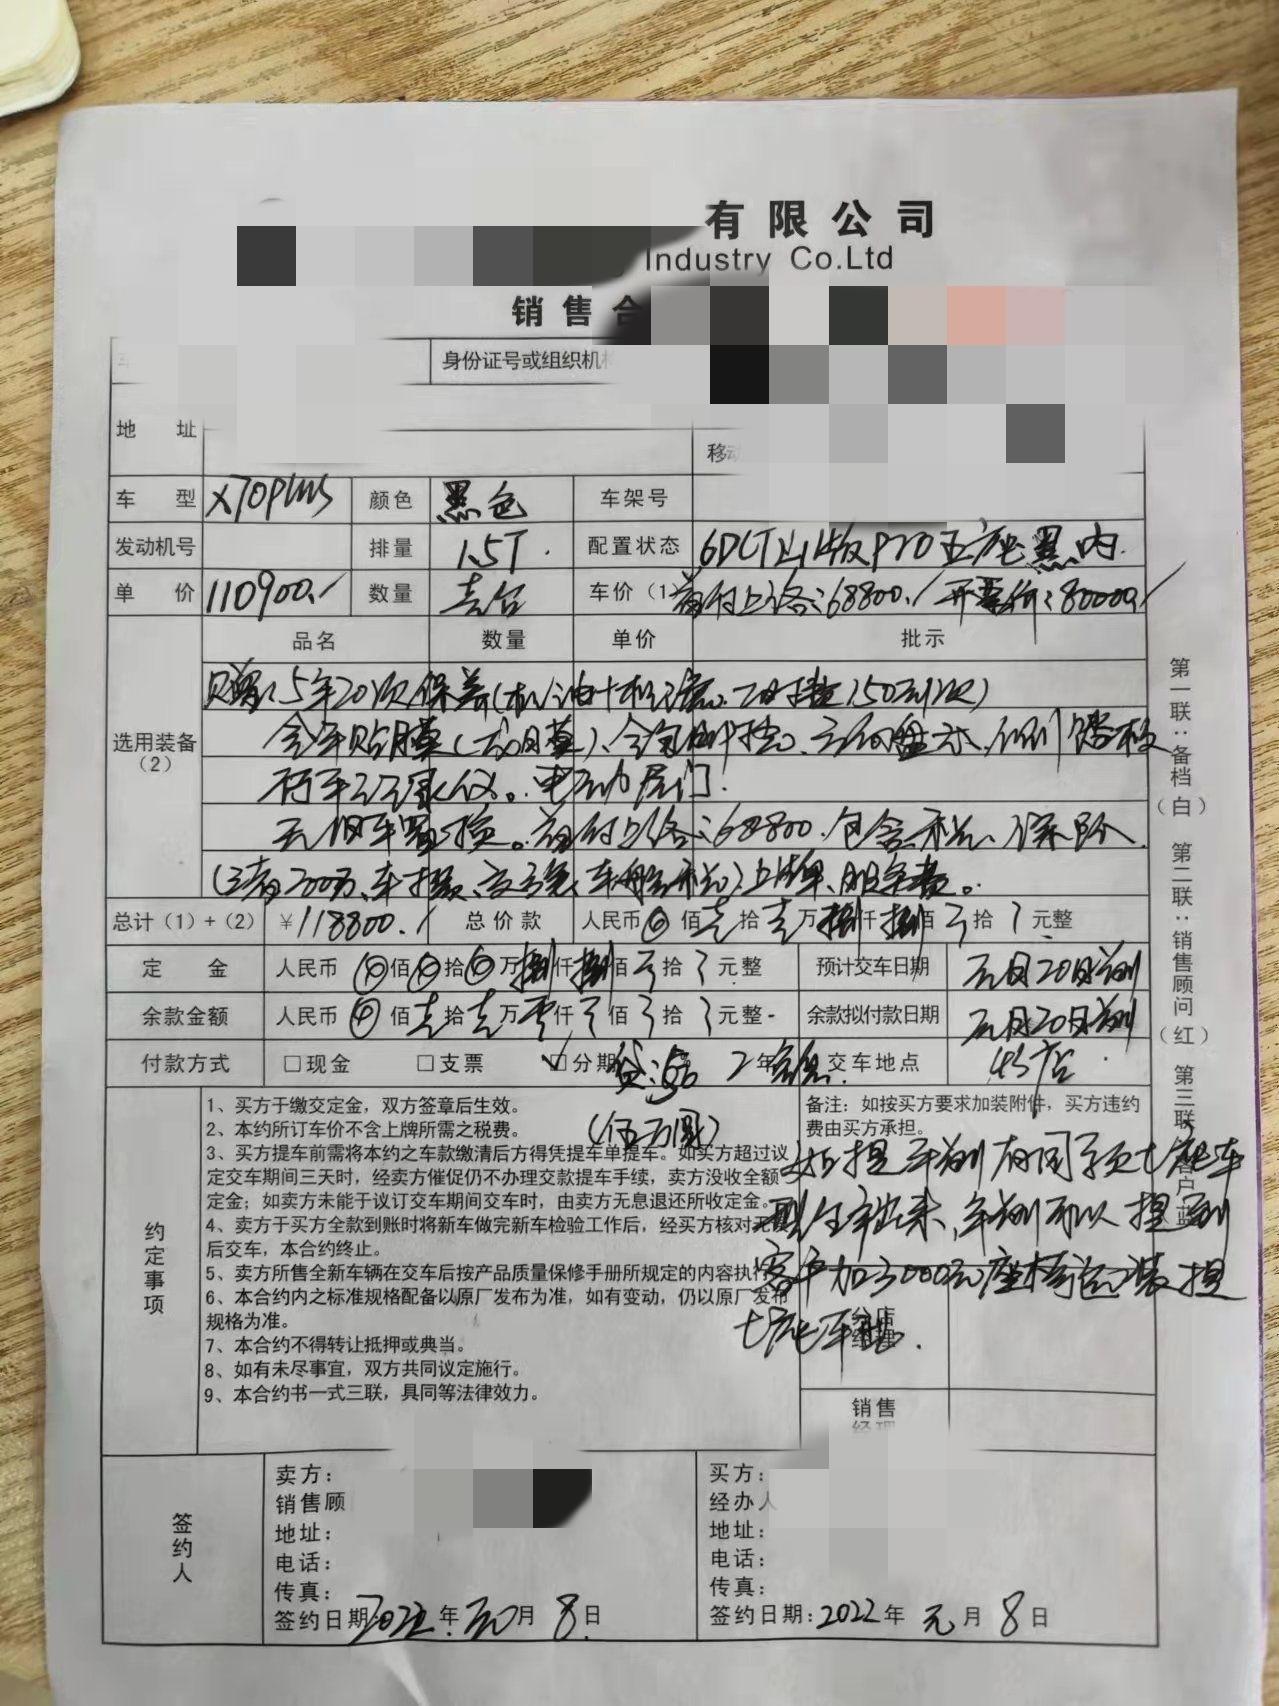 有限公司
Industry Co.Ltd
销售合
身份证号或组织机
地 址
移
车 型 X70PLUS 颜色 黑色 车架号
发动机号 排量 1.5T. 配置状态 6DCT 版Pro五座黑内.
单 价 110900./ 数量 壹台 车价(1) 首付上路:68800./ 开票价:80000./
品名 数量 单价 批示
选用装备(2)
赠:5年20次保养(机油+机滤. 150元/次)
全车贴膜( ).全包脚垫.方向盘套. 踏板
行车记录仪。电动尾门.
无旧车置换。首付上路:68800.包含税、保险.
(三者200万、车损、交强、车船税)上牌、服务费。
总计(1)+(2) ¥118800./ 总价款 人民币 佰壹拾壹万捌仟捌佰 拾 元整
定 金 人民币 佰 拾 万捌仟捌佰 拾 元整 预计交车日期 元月20日前
余款金额 人民币 佰壹拾壹万零仟 佰 拾 元整- 余款拟付款日期 元月20日前
付款方式 □现金 □支票 ☑分期 贷:5万 2年 息. 交车地点 4S店.
(伍万圆)
约定事项
1、买方于缴交定金,双方签章后生效。
2、本约所订车价不含上牌所需之税费。
3、买方提车前需将本约之车款缴清后方得凭提车单提车。如买方超过议
定交车期间三天时,经卖方催促仍不办理交款提车手续,卖方没收全额
定金;如卖方未能于议订交车期间交车时,由卖方无息退还所收定金。
4、卖方于买方全款到账时将新车做完新车检验工作后,经买方核对无
后交车,本合约终止。
5、卖方所售全新车辆在交车后按产品质量保修手册所规定的内容执行
6、本合约内之标准规格配备以原厂发布为准,如有变动,仍以原厂发布
规格为准。
7、本合约不得转让抵押或典当。
8、如有未尽事宜,双方共同议定施行。
9、本合约书一式三联,具同等法律效力。
备注:如按买方要求加装附件,买方违约
费由买方承担。
如提车前有同等 七座车
型生产出来、年前可以提到
客户加3000元座椅 装提
七座车型.
销售
经理
签约人
卖方:
销售顾
地址:
电话:
传真:
签约日期:2022年元月8日
买方:
经办人
地址:
电话:
传真:
签约日期:2022年元月8日
第一联:备档(白) 第二联:销售顾问(红) 第三联:客户(蓝